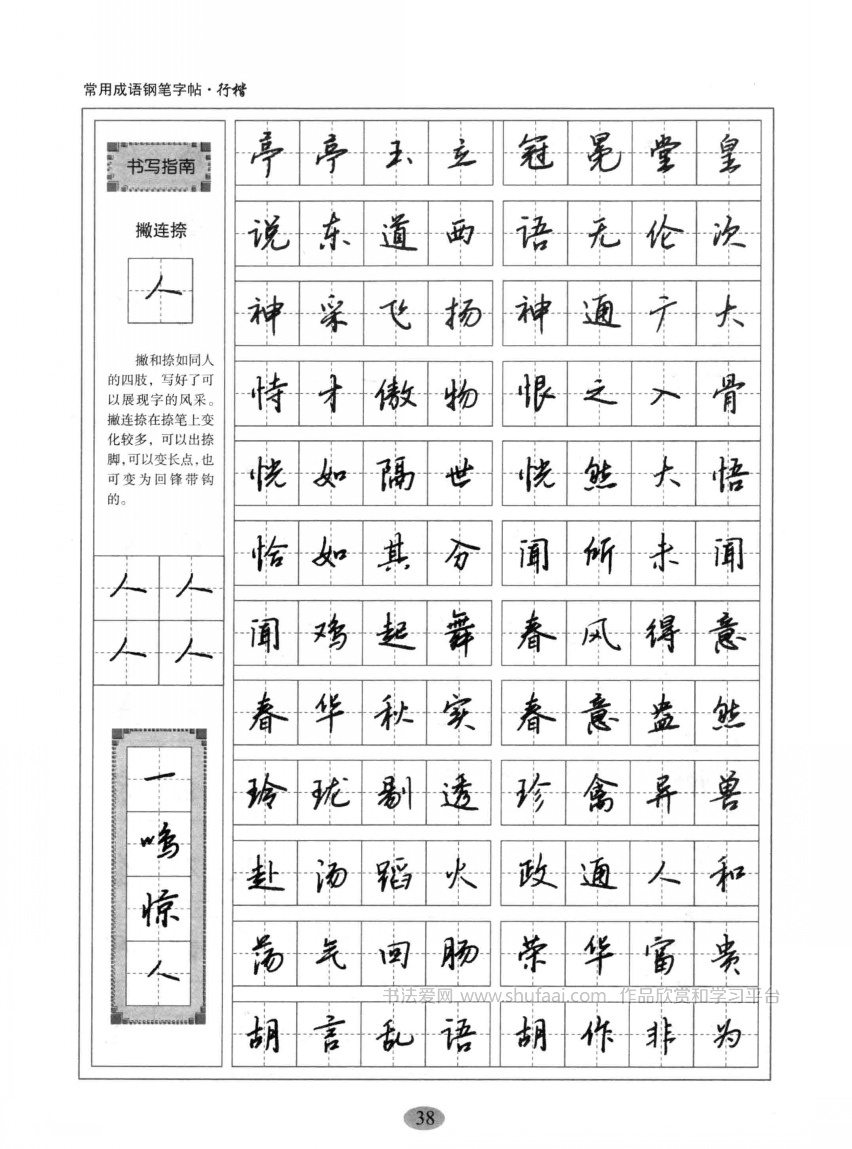 常用成语钢笔字帖·行楷
书写指南
撇连捺
人
撇和捺如同人
的四肢，写好了可
以展现字的风采。
撇连捺在捺笔上变
化较多，可以出捺
脚，可以变长点，也
可变为回锋带钩
的。
人 人
人 人
一
鸣
惊
人
亭亭玉立 冠冕堂皇
说东道西 语无伦次
神采飞扬 神通广大
恃才傲物 恨之入骨
恍如隔世 恍然大悟
恰如其分 闻所未闻
闻鸡起舞 春风得意
春华秋实 春意盎然
玲珑剔透 珍禽异兽
赴汤蹈火 政通人和
荡气回肠 荣华富贵
书法爱网 www.shufaai.com 作品欣赏和学习平台
胡言乱语 胡作非为
38